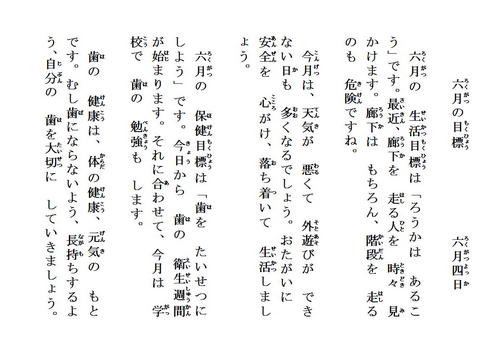 六月の目標　六月四日
六月の　生活目標は「ろうかは　あるこ
う」です。最近、廊下を　走る人を　時々　見
かけます。廊下は　もちろん、階段を　走る
のも　危険ですね。
今月は、天気が　悪くて　外遊びが　でき
ない日も　多くなるでしょう。おたがいに
安全を　心がけ、落ち着いて　生活しまし
ょう。
六月の　保健目標は「歯を　たいせつに
しよう」です。今日から　歯の　衛生週間
が始まります。それに合わせて、今月は　学
校で　歯の　勉強も　します。
歯の　健康は、体の健康、元気の　もと
です。むし歯にならないよう、長持ちするよ
う、自分の　歯を大切に　していきましょう。